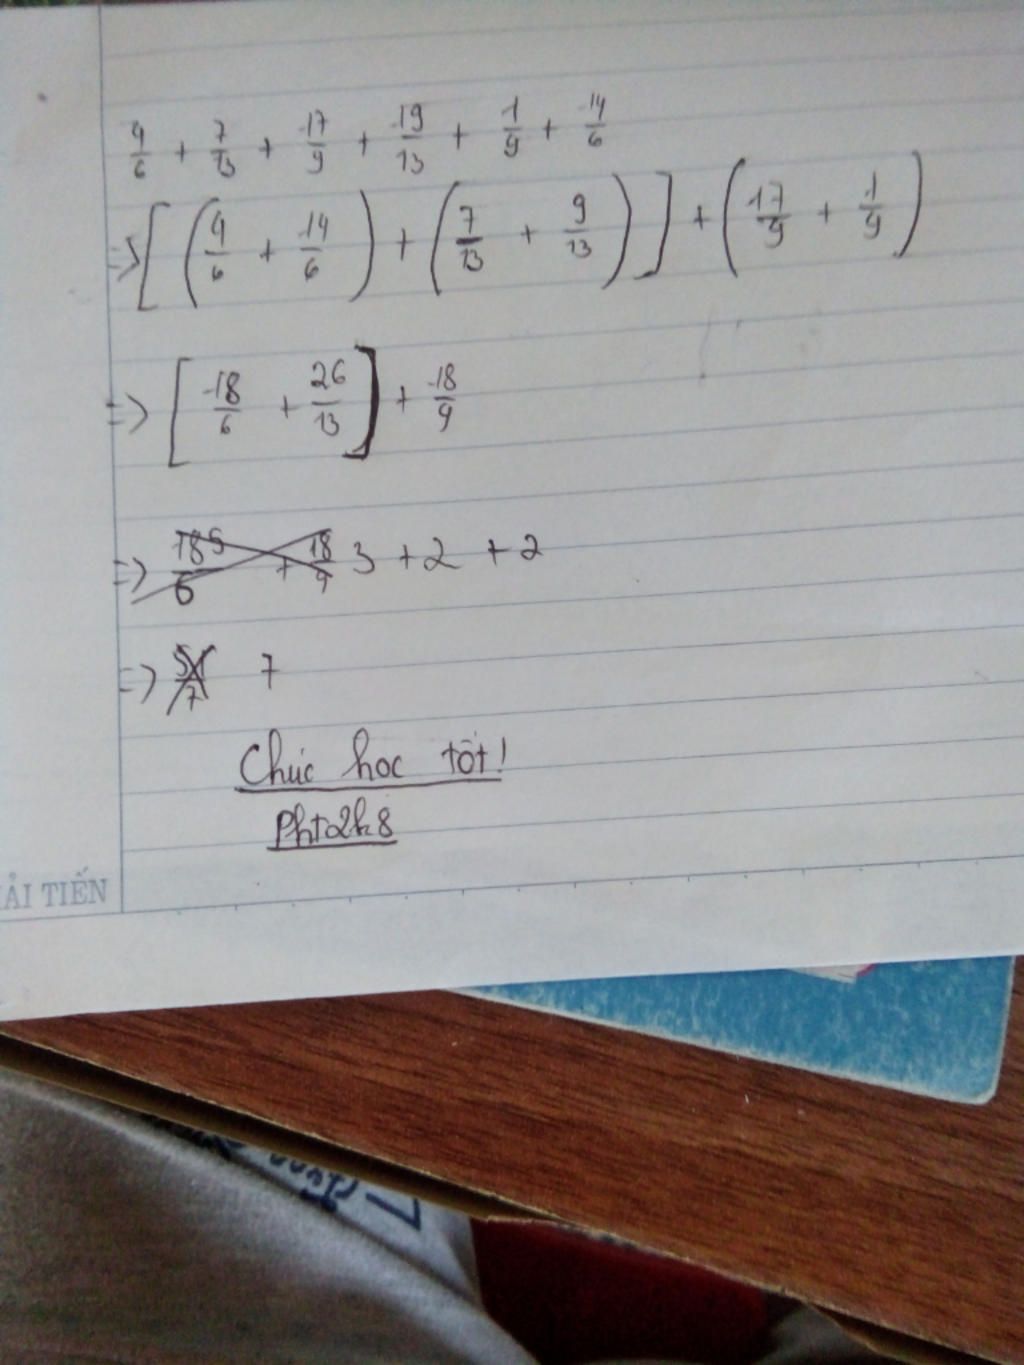 4/6 + 7/13 + -17/9 + -19/13 + -1/9 + -14/6
=> [ ( 4/6 + -14/6 ) + ( 7/13 + 9/13 ) ] + ( -17/9 + -1/9 )
=> [ -18/6 + 26/13 ] + -18/9
=> 3 + 2 + 2
=> 7
Chúc học tốt!
Pht2k8
ẢI TIẾN